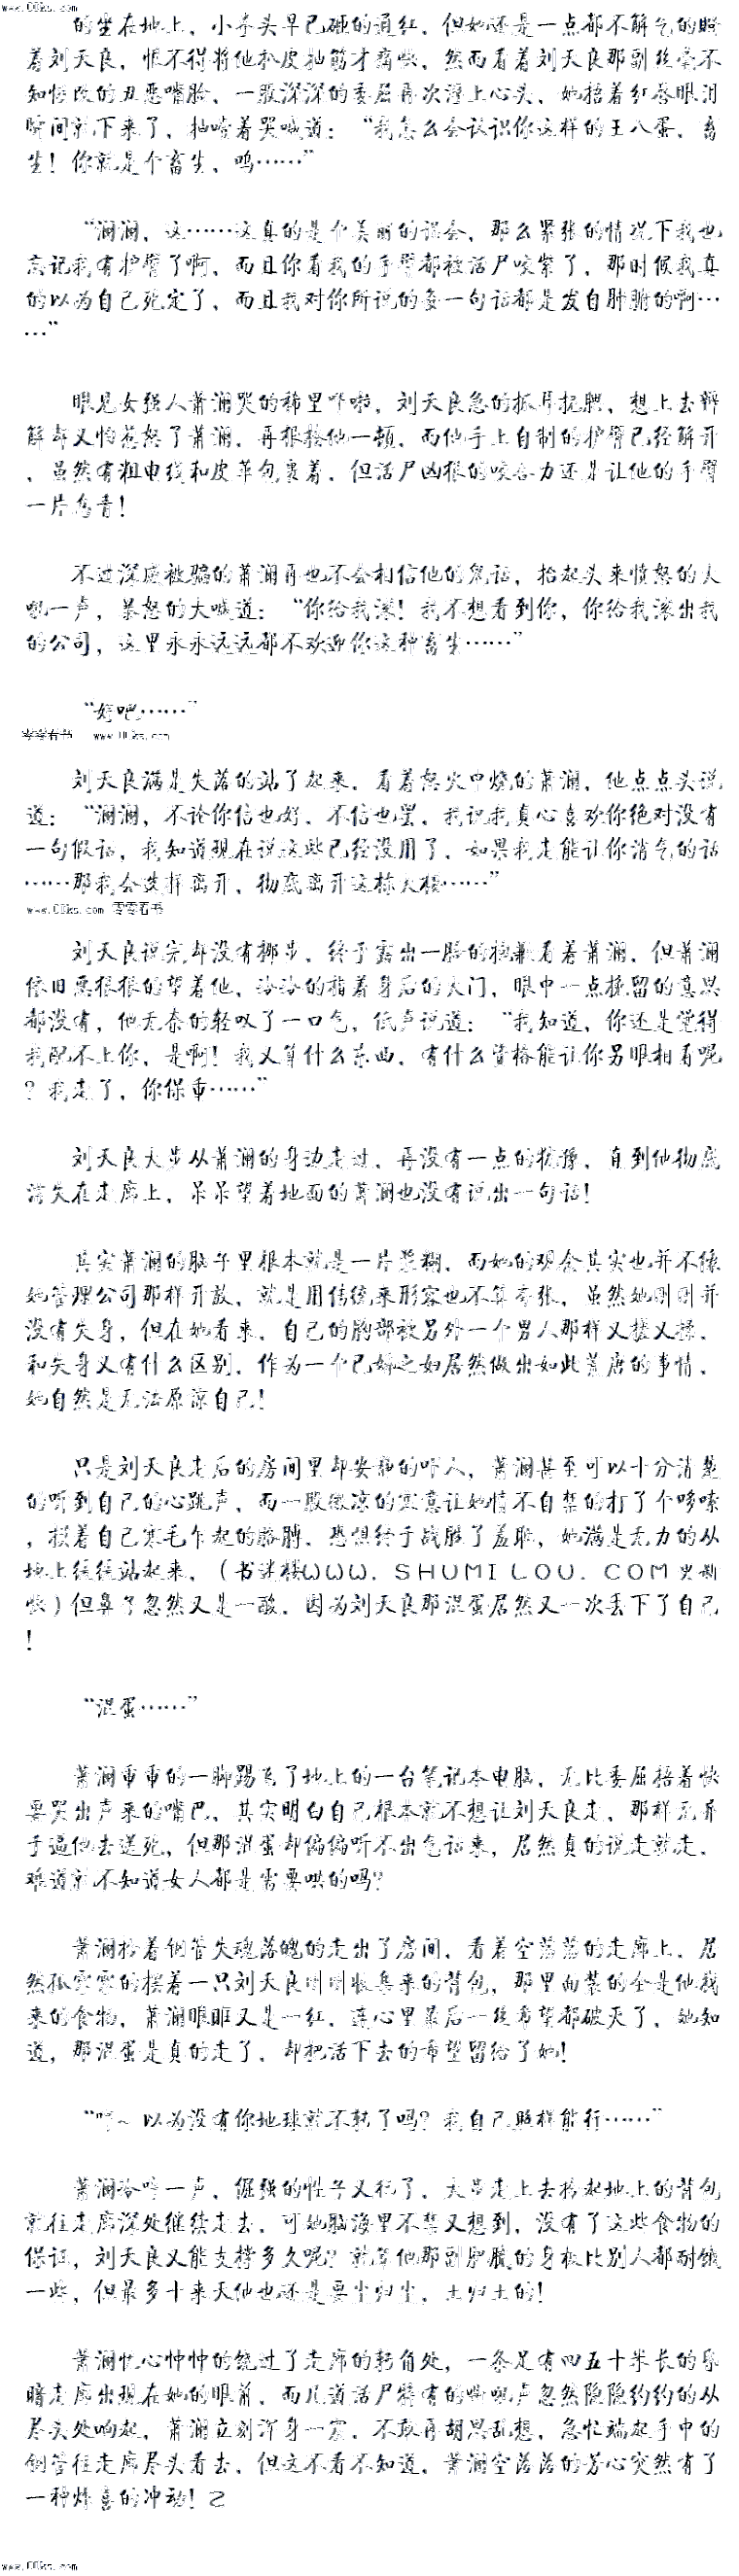 www.00ks.com
的坐在地上，小拳头早已砸的通红，但她还是一点都不解气的瞪
着刘天良，恨不得将他扒皮抽筋才痛快，然而看着刘天良那副丝毫不
知悔改的丑恶嘴脸，一股深深的委屈再次涌上心头，她捂着红唇眼泪
瞬间就下来了，抽噎着哭喊道：“我怎么会认识你这样的王八蛋，畜
生！你就是个畜生，呜……”
“澜澜，这……这真的是个美丽的误会，那么紧张的情况下我也
忘记我有护臂了啊，而且你看我的手臂都被活尸咬紫了，那时候我真
的以为自己死定了，而且我对你所说的每一句话都是发自肺腑的啊…
…”
眼见女强人萧澜哭的稀里哗啦，刘天良急的抓耳挠腮，想上去辩
解却又怕惹怒了萧澜，再狠抡他一顿，而他手上自制的护臂已经解开
，虽然有粗电线和皮革包裹着，但活尸凶狠的咬合力还是让他的手臂
一片乌青！
不过深度被骗的萧澜再也不会相信他的鬼话，抬起头来愤怒的大
吼一声，暴怒的大喊道：“你给我滚！我不想看到你，你给我滚出我
的公司，这里永永远远都不欢迎你这种畜生……”
“好吧……”
零零看书 www.00ks.com
刘天良满是失落的站了起来，看着怒火中烧的萧澜，他点点头说
道：“澜澜，不论你信也好，不信也罢，我说我真心喜欢你绝对没有
一句假话，我知道现在说这些已经没用了，如果我走能让你消气的话
……那我会选择离开，彻底离开这栋大楼……”
www.00ks.com 零零看书
刘天良说完却没有挪步，终于露出一脸的抱歉看着萧澜，但萧澜
依旧恶狠狠的望着他，冷冷的指着身后的大门，眼中一点挽留的意思
都没有，他无奈的轻叹了一口气，低声说道：“我知道，你还是觉得
我配不上你，是啊！我又算什么东西，有什么资格能让你另眼相看呢
？我走了，你保重……”
刘天良大步从萧澜的身边走过，再没有一点的犹豫，直到他彻底
消失在走廊上，呆呆望着地面的萧澜也没有说出一句话！
其实萧澜的脑子里根本就是一片浆糊，而她的观念其实也并不像
她管理公司那样开放，就是用传统来形容也不算夸张，虽然她刚刚并
没有失身，但在她看来，自己的胸部被另外一个男人那样又搓又揉，
和失身又有什么区别，作为一个已婚之妇居然做出如此荒唐的事情，
她自然是无法原谅自己！
只是刘天良走后的房间里却安静的吓人，萧澜甚至可以十分清楚
的听到自己的心跳声，而一股微凉的寒意让她情不自禁的打了个哆嗦
，摸着自己寒毛乍起的胳膊，恐惧终于战胜了羞耻，她满是无力的从
地上往往站起来，（书迷楼WWW．SHUMILOU．COM更新
快）但鼻子忽然又是一酸，因为刘天良那混蛋居然又一次丢下了自己
！
“混蛋……”
萧澜重重的一脚踢飞了地上的一台笔记本电脑，无比委屈捂着快
要哭出声来的嘴巴，其实明白自己根本就不想让刘天良走，那样无异
于逼他去送死，但那混蛋却偏偏听不出气话来，居然真的说走就走，
难道就不知道女人都是需要哄的吗？
萧澜拎着钢管失魂落魄的走出了房间，看着空荡荡的走廊上，居
然孤零零的摆着一只刘天良刚刚收集来的背包，那里面装的全是他找
来的食物，萧澜眼眶又是一红，连心里最后一丝希望都破灭了，她知
道，那混蛋是真的走了，却把活下去的希望留给了她！
“哼～以为没有你地球就不转了吗？我自己照样能行……”
萧澜冷哼一声，倔强的性子又犯了，大步走上去拎起地上的背包
就往走廊深处继续走去，可她脑海里不禁又想到，没有了这些食物的
保证，刘天良又能支撑多久呢？就算他那副肥腻的身板比别人都耐饿
一些，但最多十来天他也还是要尘归尘，土归土的！
萧澜忧心忡忡的绕过了走廊的转角处，一条足有四五十米长的昏
暗走廊出现在她的眼前，而几道活尸特有的嘶吼声忽然隐隐约约的从
尽头处响起，萧澜立刻浑身一震，不敢再胡思乱想，急忙端起手中的
钢管往走廊尽头看去，但这不看不知道，萧澜空荡荡的芳心突然有了
一种炸喜的冲动！2
www.00ks.com